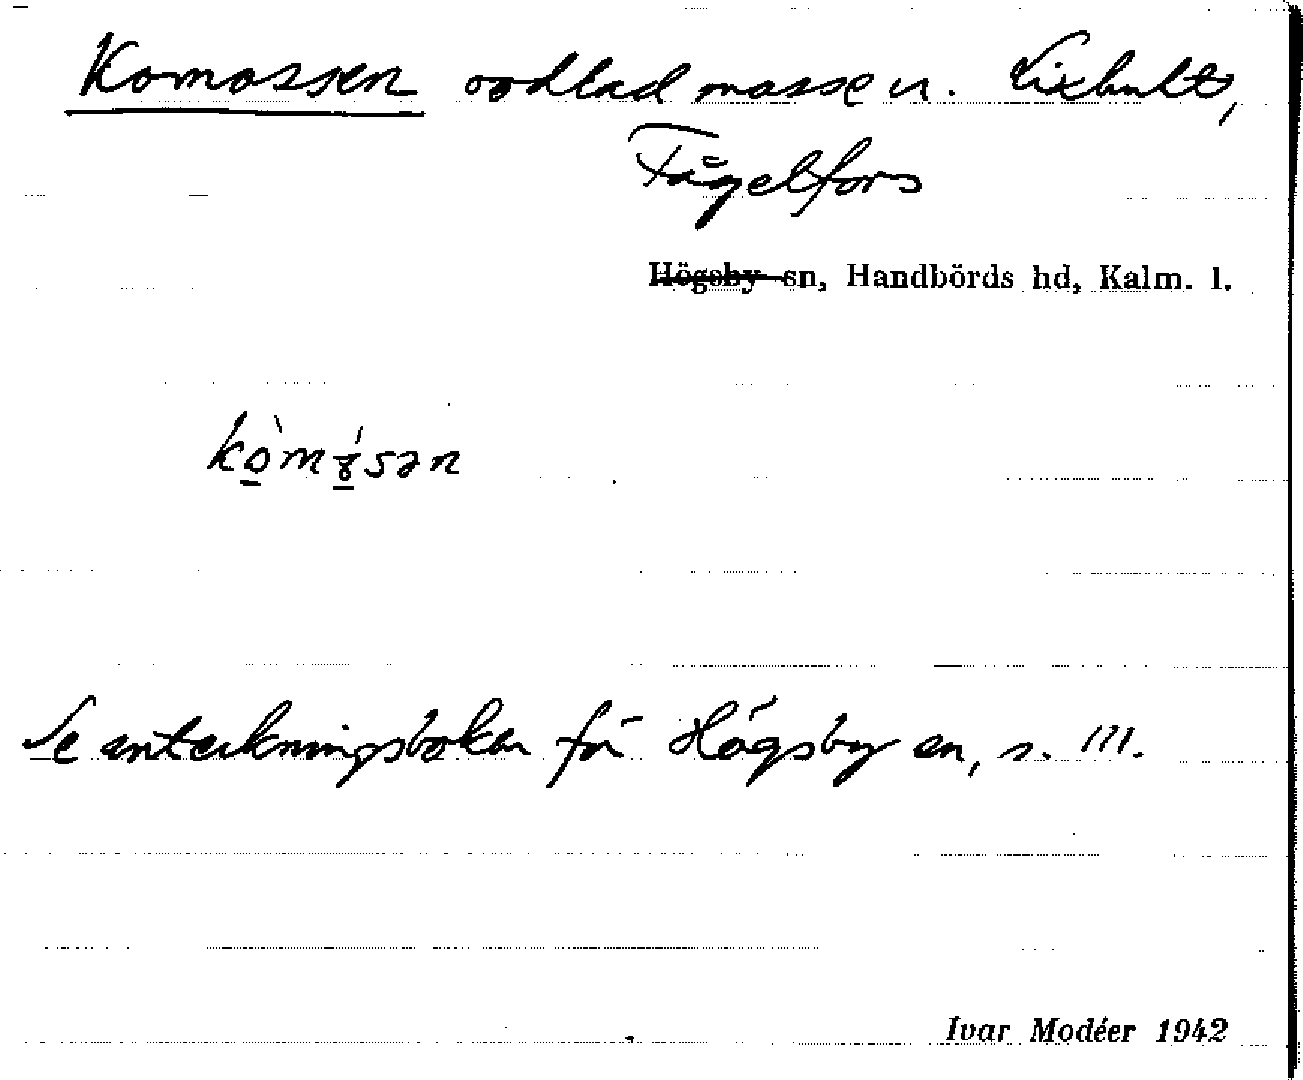 Komossen oodlad mosse u. Lixhult,
Fågelfors
Högsby sn, Handbörds hd, Kalm. l.
Se anteckningsboken för Högsby sn, s. 111.
Ivar Modéer 1942